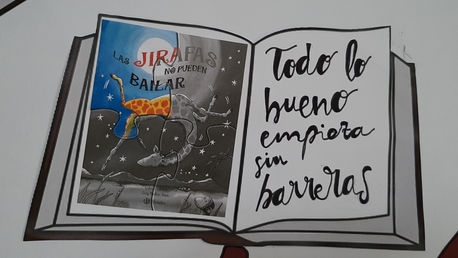 LAS JIRAFAS
NO PUEDEN
BAILAR
Todo lo
bueno
empieza
sin
barreras